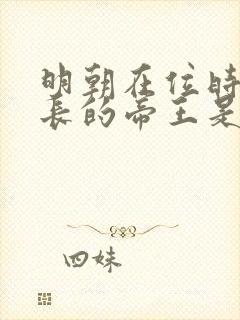 明朝在位时
长的帝王是
四妹